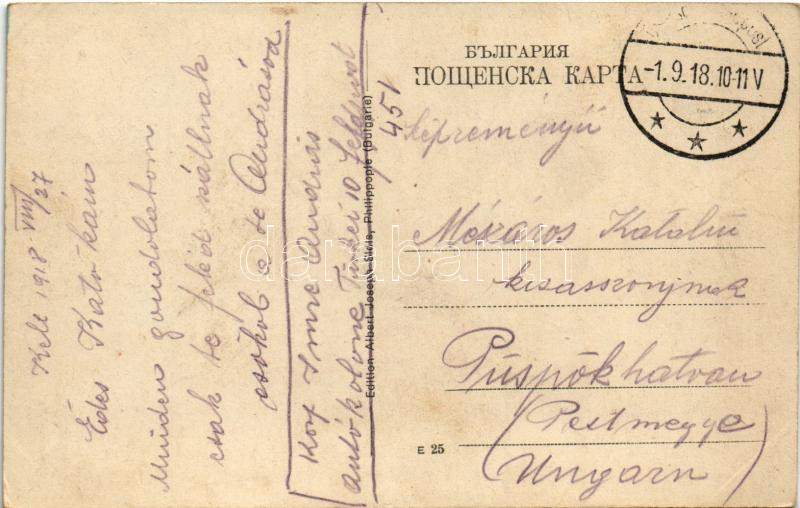 Kelt 1918 VIII/27
Édes Katókám
Minden gondolatom
csak te feléd szállnak
csókol a te Andrásod
Imre András
autókolone Türkei 10 Feldpost
451
Edition Albert Joseph, Philippople (Bulgarie)
БЪЛГАРИЯ
ПОЩЕНСКА КАРТА
-1.9.18.10-11V
Mészáros Katalin
kisasszonynak
Püspökhatvan
(Pestmegye)
Ungarn
E 25
darabanth